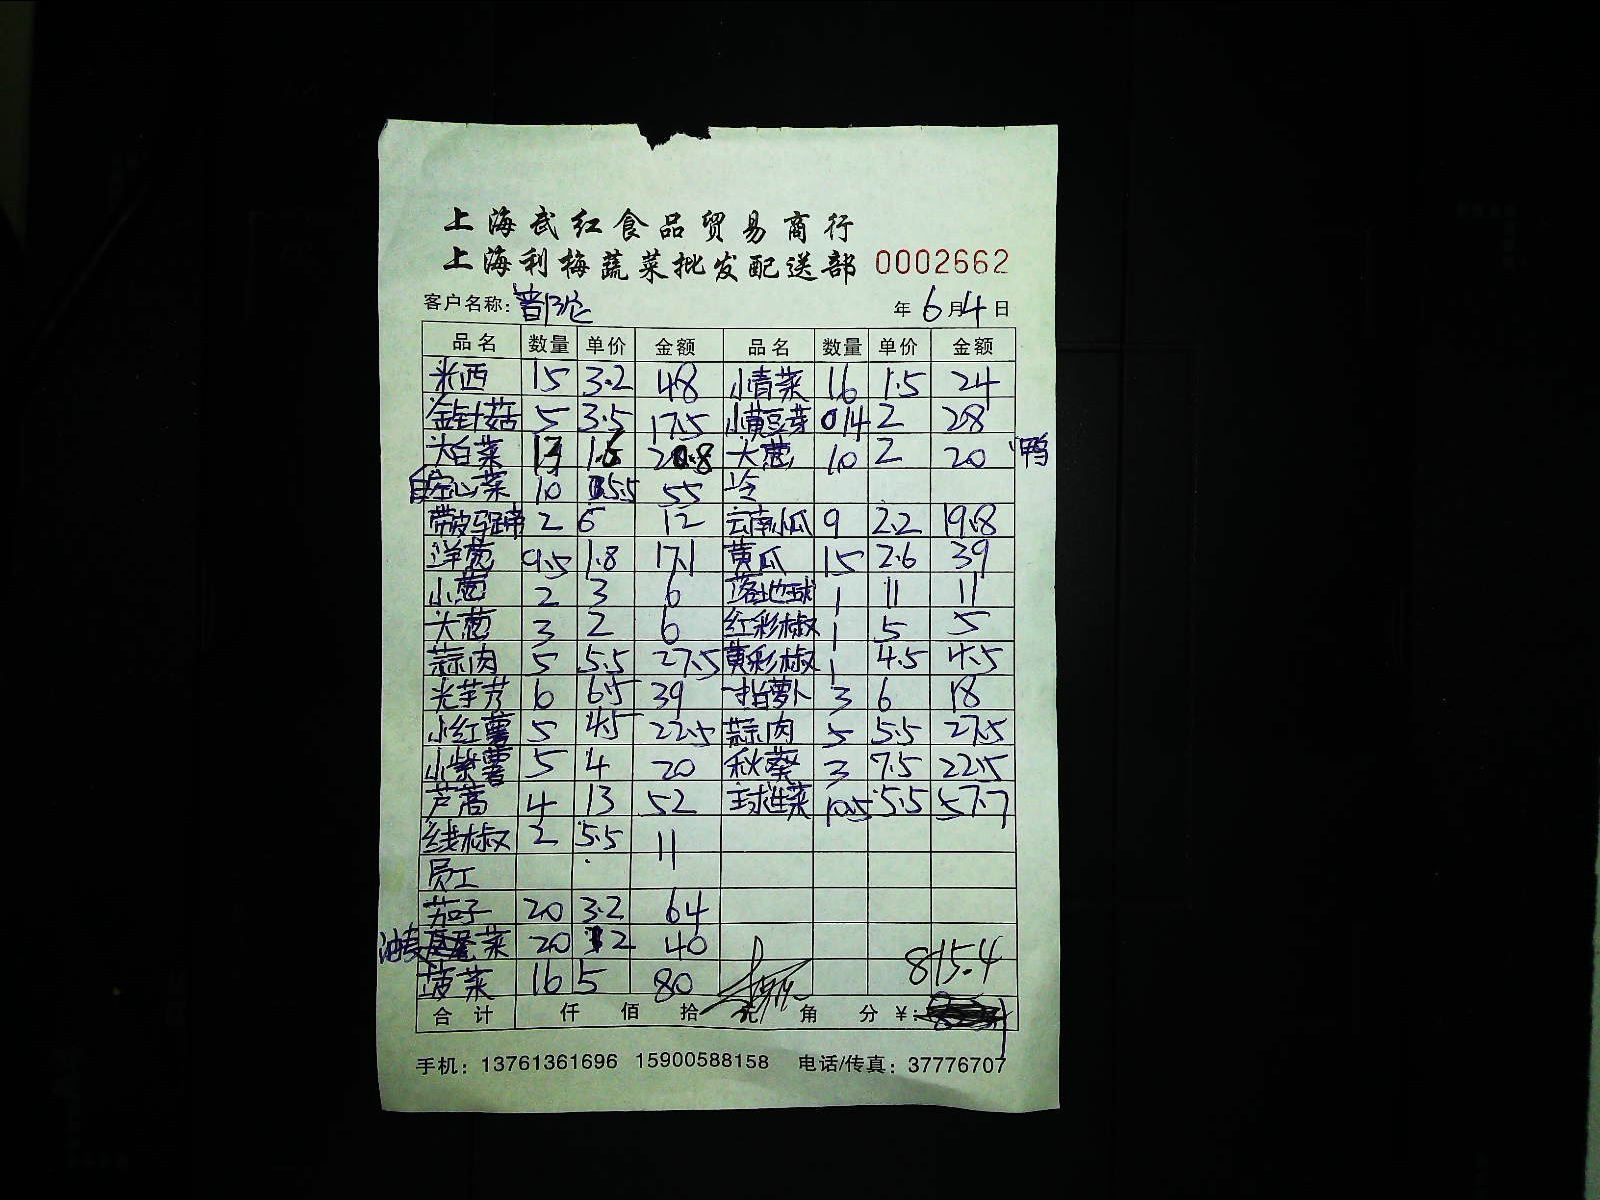 上海武红食品贸易商行
上海利梅蔬菜批发配送部 0002662
客户名称: 普陀 年 6 月 4 日
品名 数量 单价 金额 品名 数量 单价 金额
米西 15 3.2 48 小青菜 16 1.5 24
金针菇 5 3.5 17.5 小黄豆芽 14 2 28
大白菜 13 1.6 20.8 大葱 10 2 20 鸭
空心菜 10 5.5 55 冷
带皮马蹄 2 6 12 云南小瓜 9 2.2 19.8
洋葱 9.5 1.8 17.1 黄瓜 15 2.6 39
小葱 2 3 6 落地球 1 11 11
大葱 3 2 6 红彩椒 1 5 5
蒜肉 5 5.5 27.5 黄彩椒 1 4.5 4.5
光芋艿 6 6.5 39 指萝卜 3 6 18
小红薯 5 4.5 22.5 蒜肉 5 5.5 27.5
小紫薯 5 4 20 秋葵 3 7.5 22.5
芦蒿 4 13 52 球生菜 10.5 5.5 57.7
线椒 2 5.5 11
员工
茄子 20 3.2 64
油麦菜 20 2 40 815.4
菠菜 16 5 80
合计 仟 佰 拾 元 角 分 ¥:
手机: 13761361696 15900588158 电话/传真: 37776707